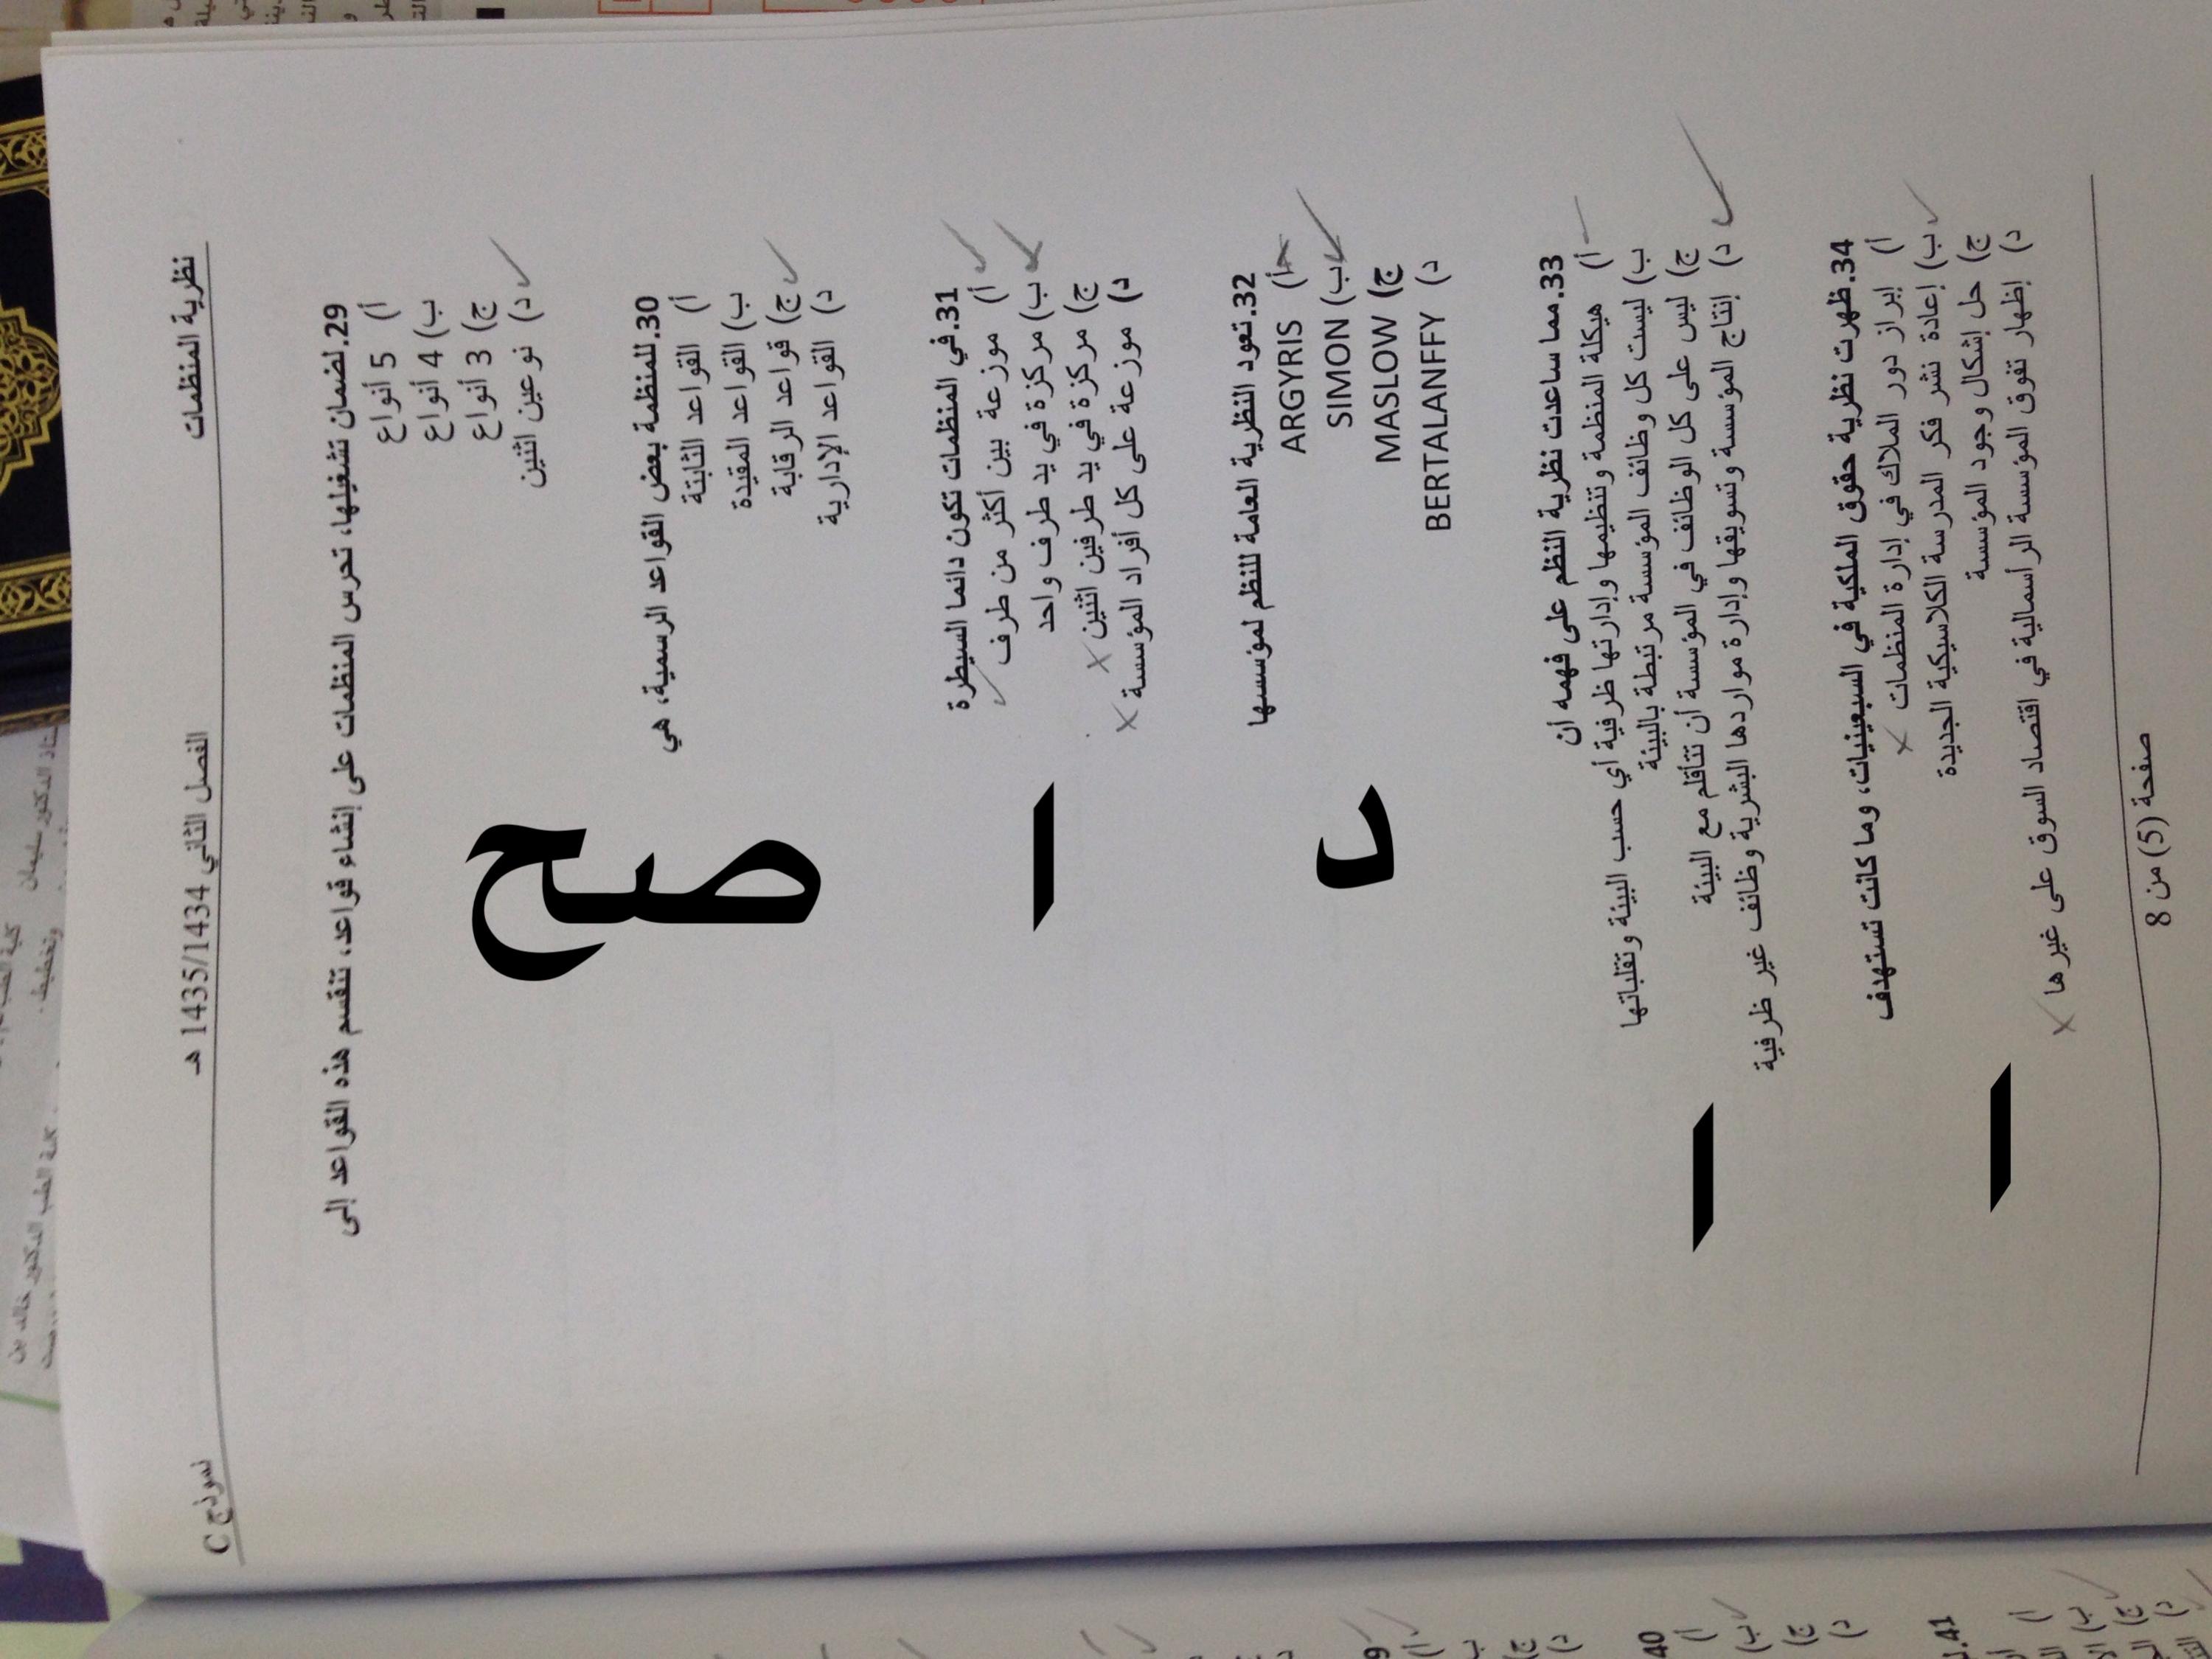 نظرية المنظمات
الفصل الثاني 1435/1434 هـ
نموذج C
29.لضمان تشغيلها، تحرس المنظمات على إنشاء قواعد، تنقسم هذه القواعد إلى
أ) 5 أنواع
ب) 4 أنواع
ج) 3 أنواع
د) نوعين اثنين
30.للمنظمة بعض القواعد الرسمية، هي
أ) القواعد الثابتة
ب) القواعد المقيدة
ج) قواعد الرقابة
د) القواعد الإدارية
صح
31.في المنظمات تكون دائما السيطرة
أ) موزعة بين أكثر من طرف
ب) مركزة في يد طرف واحد
ج) مركزة في يد طرفين اثنين
د) موزعة على كل أفراد المؤسسة
ا
32.تعود النظرية العامة للنظم لمؤسسها
أ) ARGYRIS
ب) SIMON
ج) MASLOW
د) BERTALANFFY
د
33.مما ساعدت نظرية النظم على فهمه أن
أ) هيكلة المنظمة وتنظيمها وإدارتها ظرفية أي حسب البيئة وتقلباتها
ب) ليست كل وظائف المؤسسة مرتبطة بالبيئة
ج) ليس على كل الوظائف في المؤسسة أن تتأقلم مع البيئة
د) إنتاج المؤسسة وتسويقها وإدارة مواردها البشرية وظائف غير ظرفية
ا
34.ظهرت نظرية حقوق الملكية في السبعينيات، وما كانت تستهدف
أ) إبراز دور الملاك في إدارة المنظمات
ب) إعادة نشر فكر المدرسة الكلاسيكية الجديدة
ج) حل إشكال وجود المؤسسة
د) إظهار تفوق المؤسسة الرأسمالية في اقتصاد السوق على غيرها
ا
صفحة (5) من 8
40
أ)
ب)
ج)
د)
41.